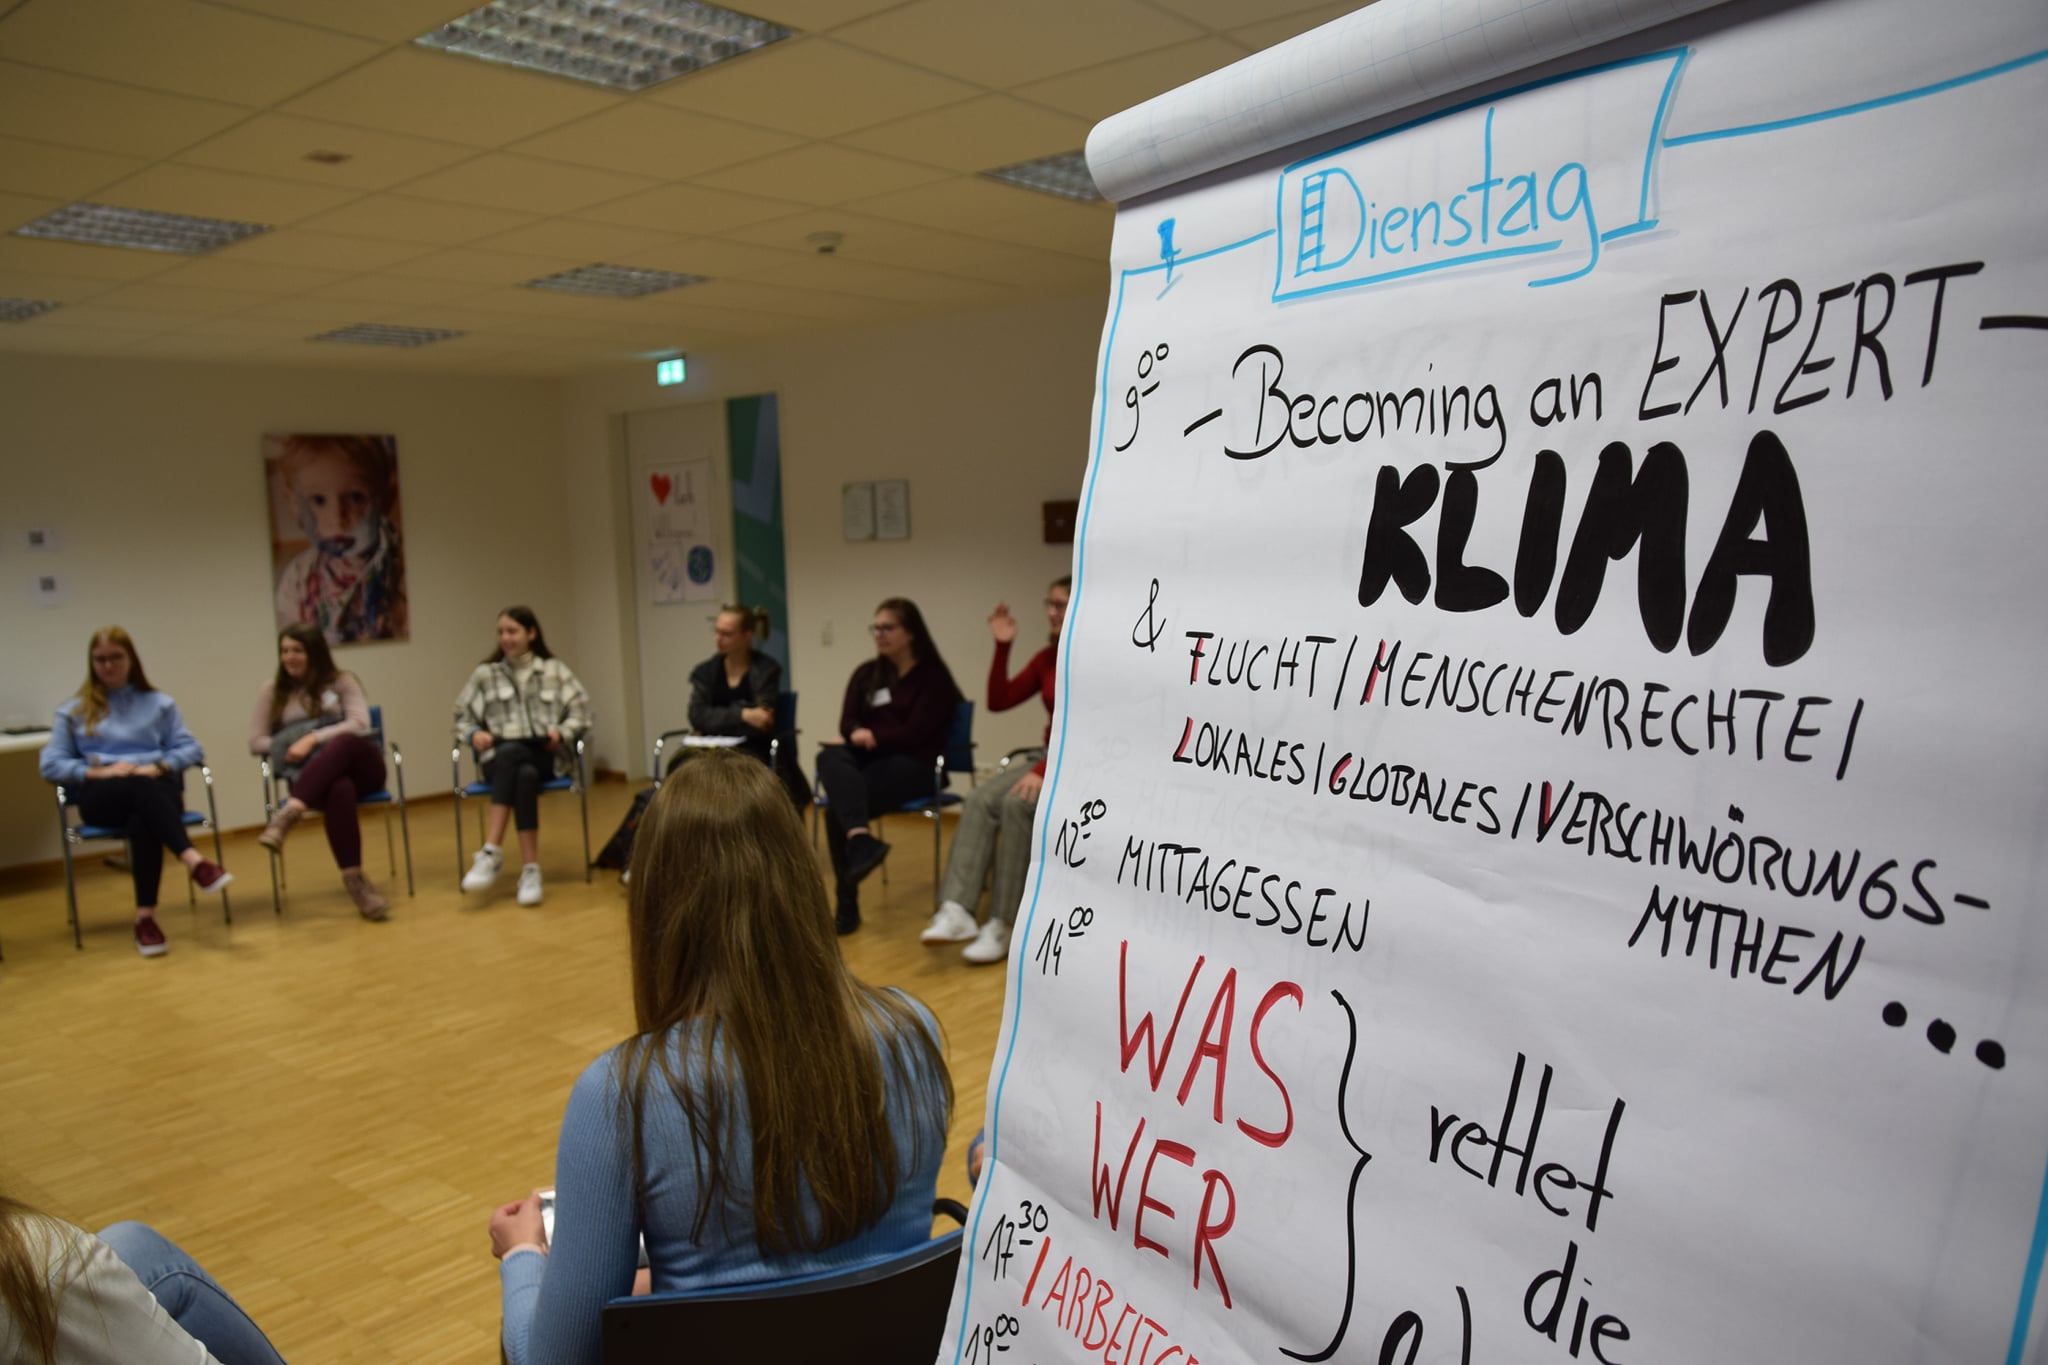 Dienstag
9⁰⁰ - Becoming an EXPERT-
KLIMA
& FLUCHT / MENSCHENRECHTE /
LOKALES / GLOBALES / VERSCHWÖRUNGS-
MYTHEN ...
12³⁰ MITTAGESSEN
14⁰⁰ WAS
WER
rettet
die
17³⁰
19⁰⁰